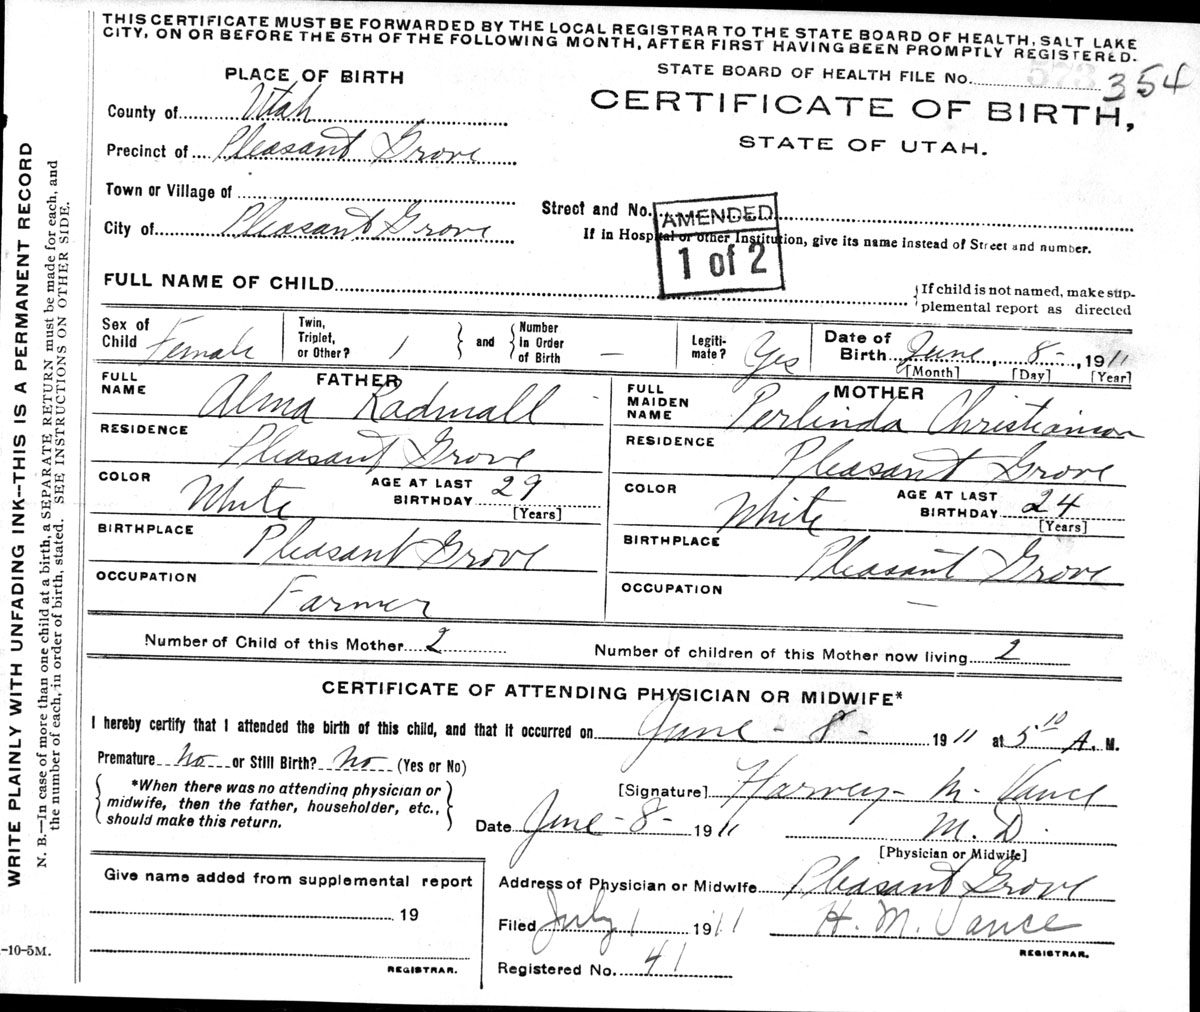 THIS CERTIFICATE MUST BE FORWARDED BY THE LOCAL REGISTRAR TO THE STATE BOARD OF HEALTH, SALT LAKE
CITY, ON OR BEFORE THE 5TH OF THE FOLLOWING MONTH, AFTER FIRST HAVING BEEN PROMPTLY REGISTERED.
PLACE OF BIRTH
STATE BOARD OF HEALTH FILE No. 354
County of Utah
CERTIFICATE OF BIRTH,
Precinct of Pleasant Grove
STATE OF UTAH.
Town or Village of
Street and No.
AMENDED
1 of 2
City of Pleasant Grove
If in Hospital or other Institution, give its name instead of Street and number.
FULL NAME OF CHILD
{If child is not named, make sup-
plemental report as directed
Sex of Child Female
Twin, Triplet, or Other? 1 } and { Number in Order of Birth —
Legiti-mate? Yes
Date of Birth June, 8-, 1911
[Month] [Day] [Year]
FATHER
FULL NAME Alma Radmall
MOTHER
FULL MAIDEN NAME Perlinda Christianson
RESIDENCE Pleasant Grove
RESIDENCE Pleasant Grove
COLOR White AGE AT LAST BIRTHDAY 29 [Years]
COLOR White AGE AT LAST BIRTHDAY 24 [Years]
BIRTHPLACE Pleasant Grove
BIRTHPLACE Pleasant Grove
OCCUPATION Farmer
OCCUPATION —
Number of Child of this Mother 2
Number of children of this Mother now living 2
CERTIFICATE OF ATTENDING PHYSICIAN OR MIDWIFE*
I hereby certify that I attended the birth of this child, and that it occurred on June - 8 - 1911 at 5 10 A. M.
Premature No or Still Birth? No (Yes or No)
{ *When there was no attending physician or
midwife, then the father, householder, etc.,
should make this return. }
[Signature] Harvey M. Vance
Date June - 8 - 1911 M. D.
[Physician or Midwife]
Give name added from supplemental report
19
REGISTRAR.
Address of Physician or Midwife Pleasant Grove
Filed July 1 1911 H. M. Vance
REGISTRAR.
Registered No. 41
WRITE PLAINLY WITH UNFADING INK--THIS IS A PERMANENT RECORD
N. B.—In case of more than one child at a birth, a SEPARATE RETURN must be made for each, and
the number of each, in order of birth, stated. SEE INSTRUCTIONS ON OTHER SIDE.
-10-5M.